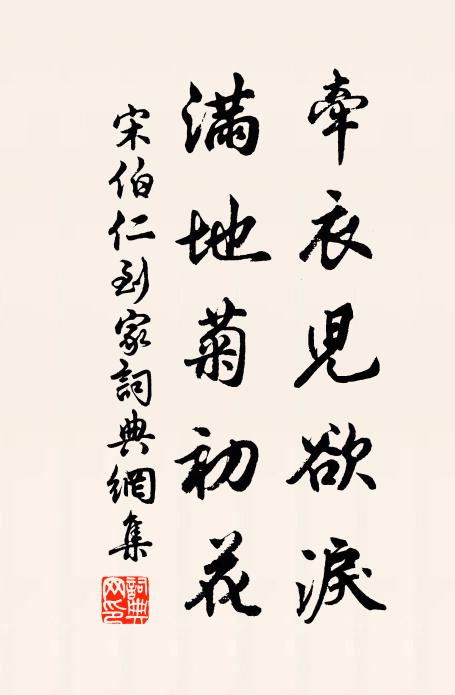 牽衣兒欲淚
滿地菊初花
宋伯仁到家詞典網集
詞典網印